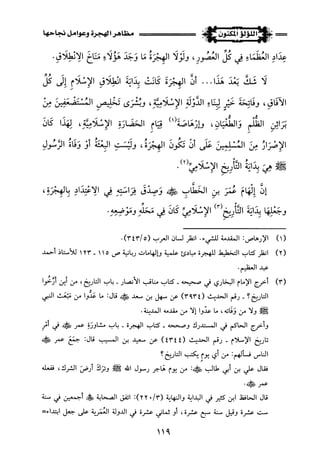 اللؤلؤ المكنون
مظاهر الهجرة وعوامل نجاحها
عِدَادِ العُظَمَاءِ فِي كُلِّ العُصُورِ، وَلَوْلَا الهِجْرَةُ مَا وَجَدَ هَؤُلَاءِ مَنَاخَ الِانْطِلَاقِ.
لَا شَكَّ بَعْدَ هَذَا... أَنَّ الهِجْرَةَ كَانَتْ بِدَايَةَ انْطِلَاقِ الإِسْلَامِ إِلَى كُلِّ
الآفَاقِ، وَفَاتِحَةَ خَيْرٍ لِبِنَاءِ الدَّوْلَةِ الإِسْلَامِيَّةِ، وَبُشْرَى تَخْلِيصِ المُسْتَضْعَفِينَ مِنْ
بَرَاثِنِ الظُّلْمِ وَالطُّغْيَانِ، وَإِرْهَاصَةَ(١) قِيَامِ الحَضَارَةِ الإِسْلَامِيَّةِ، لِهَذَا كَانَ
الإِصْرَارُ مِنَ المُسْلِمِينَ عَلَى أَنْ تَكُونَ الهِجْرَةُ، وَلَيْسَتِ البِعْثَةُ أَوْ وَفَاةُ الرَّسُولِ
ﷺ هِيَ بِدَايَةَ التَّأْرِيخِ الإِسْلَامِيِّ(٢).
إِنَّ إِلْهَامَ عُمَرَ بنِ الخَطَّابِ ﵁ وَصِدْقَ فِرَاسَتِهِ فِي الِاعْتِدَادِ بِالهِجْرَةِ،
وجَعْلِهَا بِدَايَةَ التَّأْرِيخِ(٣) الإِسْلَامِيِّ كَانَ فِي مَحَلِّهِ ومَوْضِعِهِ.
(١) الإرهاصُ: المقدمة للشيء. انظر لسان العرب (٥/٣٤٣).
(٢) انظر كتاب التخطيط للهجرة مبادئ علمية وإلهامات ربانية ص ١١٥ - ١٢٣ للأستاذ أحمد
عبد العظيم.
(٣) أخرج الإمام البخاري في صحيحه - كتاب مناقب الأنصار - باب التاريخ، من أين أَرَّخُوا
التاريخ؟ - رقم الحديث (٣٩٣٤) عن سهل بن سعد ﵁ قال: ما عَدُّوا من مَبْعَثِ النبي
ﷺ ولا من وَفَاتِهِ، ما عدّوا إلا من مقدمه المدينة.
وأخرج الحاكم في المستدرك وصححه - كتاب الهجرة - باب مشاورَةِ عمر ﵁ في أمْرِ
تاريخ الإسلام - رقم الحديث (٤٣٤٤) عن سعيد بن المسيب قال: جَمَعَ عمر ﵁
الناس فسألهم: من أي يومٍ يكتب التاريخ؟
فقال علي بن أبي طالب ﵁: من يوم هَاجَرَ رسول الله ﷺ وتَرَكَ أرضَ الشرك، ففعله
عمر ﵁.
قال الحافظ ابن كثير في البداية والنهاية (٣/٢٢٠): اتفق الصحابة ﵃ أجمعين في سنة
ست عشرة وقيل سنة سبع عشرة، أو ثماني عشرة في الدولة العُمَرية على جعل ابتداء=
١١٩